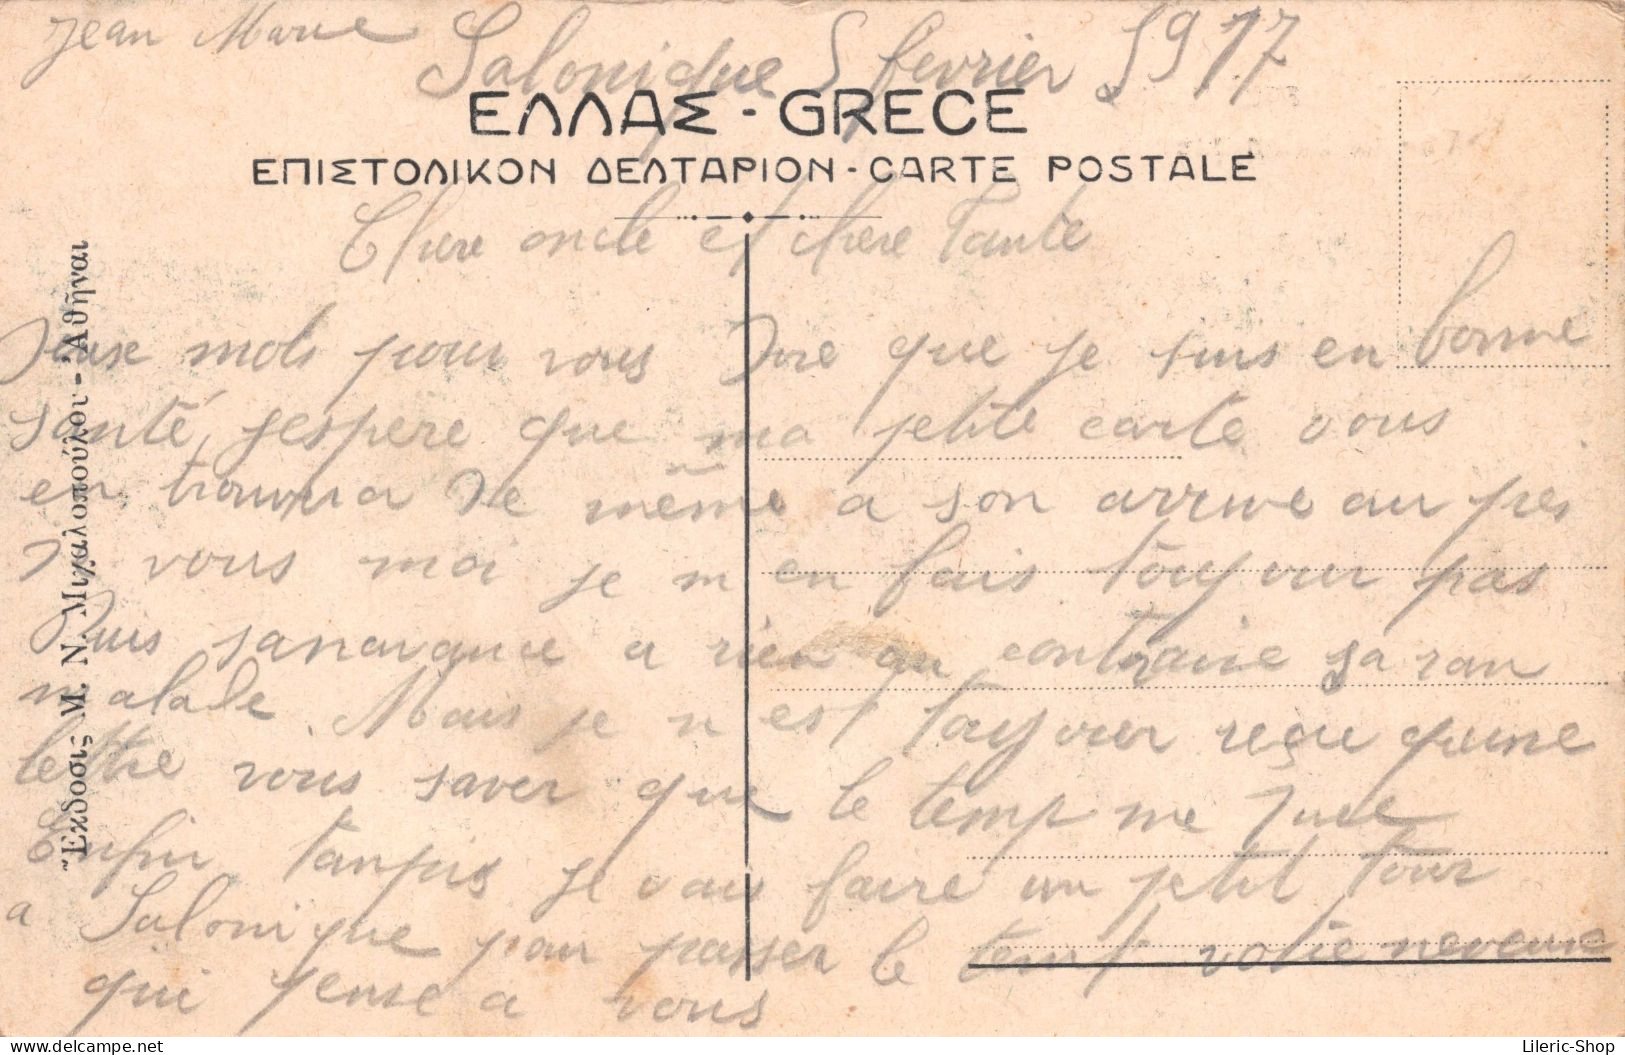 Jean Marie
Salonique 5 fevrier 1917
ΕΛΛΑΣ - GRECE
ΕΠΙΣΤΟΛΙΚΟΝ ΔΕΛΤΑΡΙΟΝ - CARTE POSTALE
Chere oncle et chere Tante
Deux mots pour vous Dire que je suis en bonne
santé, jespere que ma petite carte vous
en trouvera De même a son arrive au pres
D vous moi je m en fais toujour pas
Puis sanavance a rien au contraire sa ran
malade. Mais je n est toujour reçu qu'une
lettre vous saver que le temp me Dure
Enfin tanpis je vais faire un petit tour
a Salonique pour passer le temp votre neveux
qui pense a vous
Ἔκδοσις Μ. Ν. Μιχαλοπούλου - Ἀθῆναι
Lileric-Shop